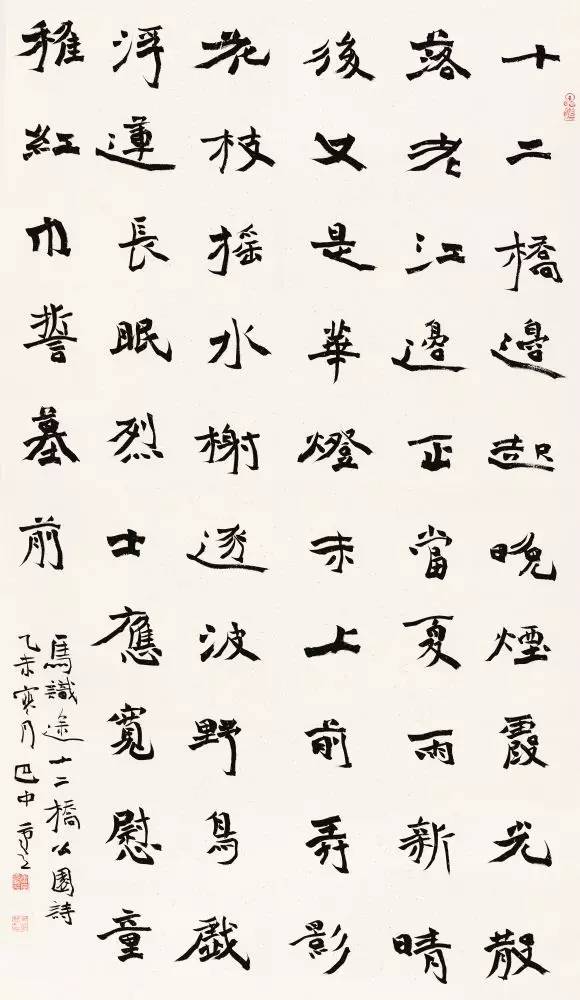 十二橋邊起晚煙霞光散
落老江邊正當夏雨新晴
後又是華燈未上前弄影
花枝搖水榭逐波野鳥戲
浮蓮長眠烈士應寬慰童
稚紅巾誓墓前
馬識途十二橋公園詩
乙未寒月巴中